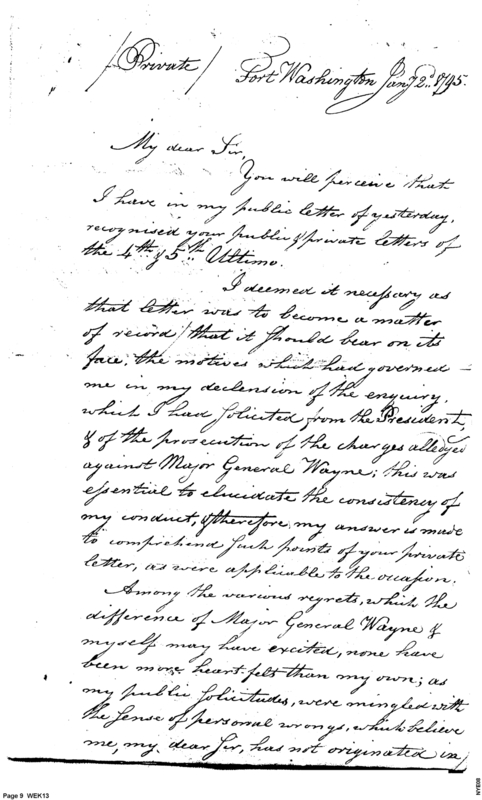 /Private/
Fort Washington Jany 2d 1795.
My dear Sir,
You will perceive that
I have in my public letter of yesterday,
recognised your public & private letters of
the 4th & 5th Ultimo.
I deemed it necessary as
that letter was to become a matter
of record / that it should bear on its
face, the motives which had governed
me in my declension of the enquiry,
which I had solicited from the President,
& of the prosecution of the charges alledged
against Major General Wayne; this was
essential to elucidate the consistency of
my conduct, & therefore, my answer is made
to comprehend such points of your private
letter, as were applicable to the occasion.
Among the various regrets, which the
difference of Major General Wayne &
myself may have excited, none have
been more heart felt than my own; as
my public solicitudes, were mingled with
the sense of personal wrongs, which believe
me, my dear Sir, has not originated in
Page 9 WEK13
NYE08